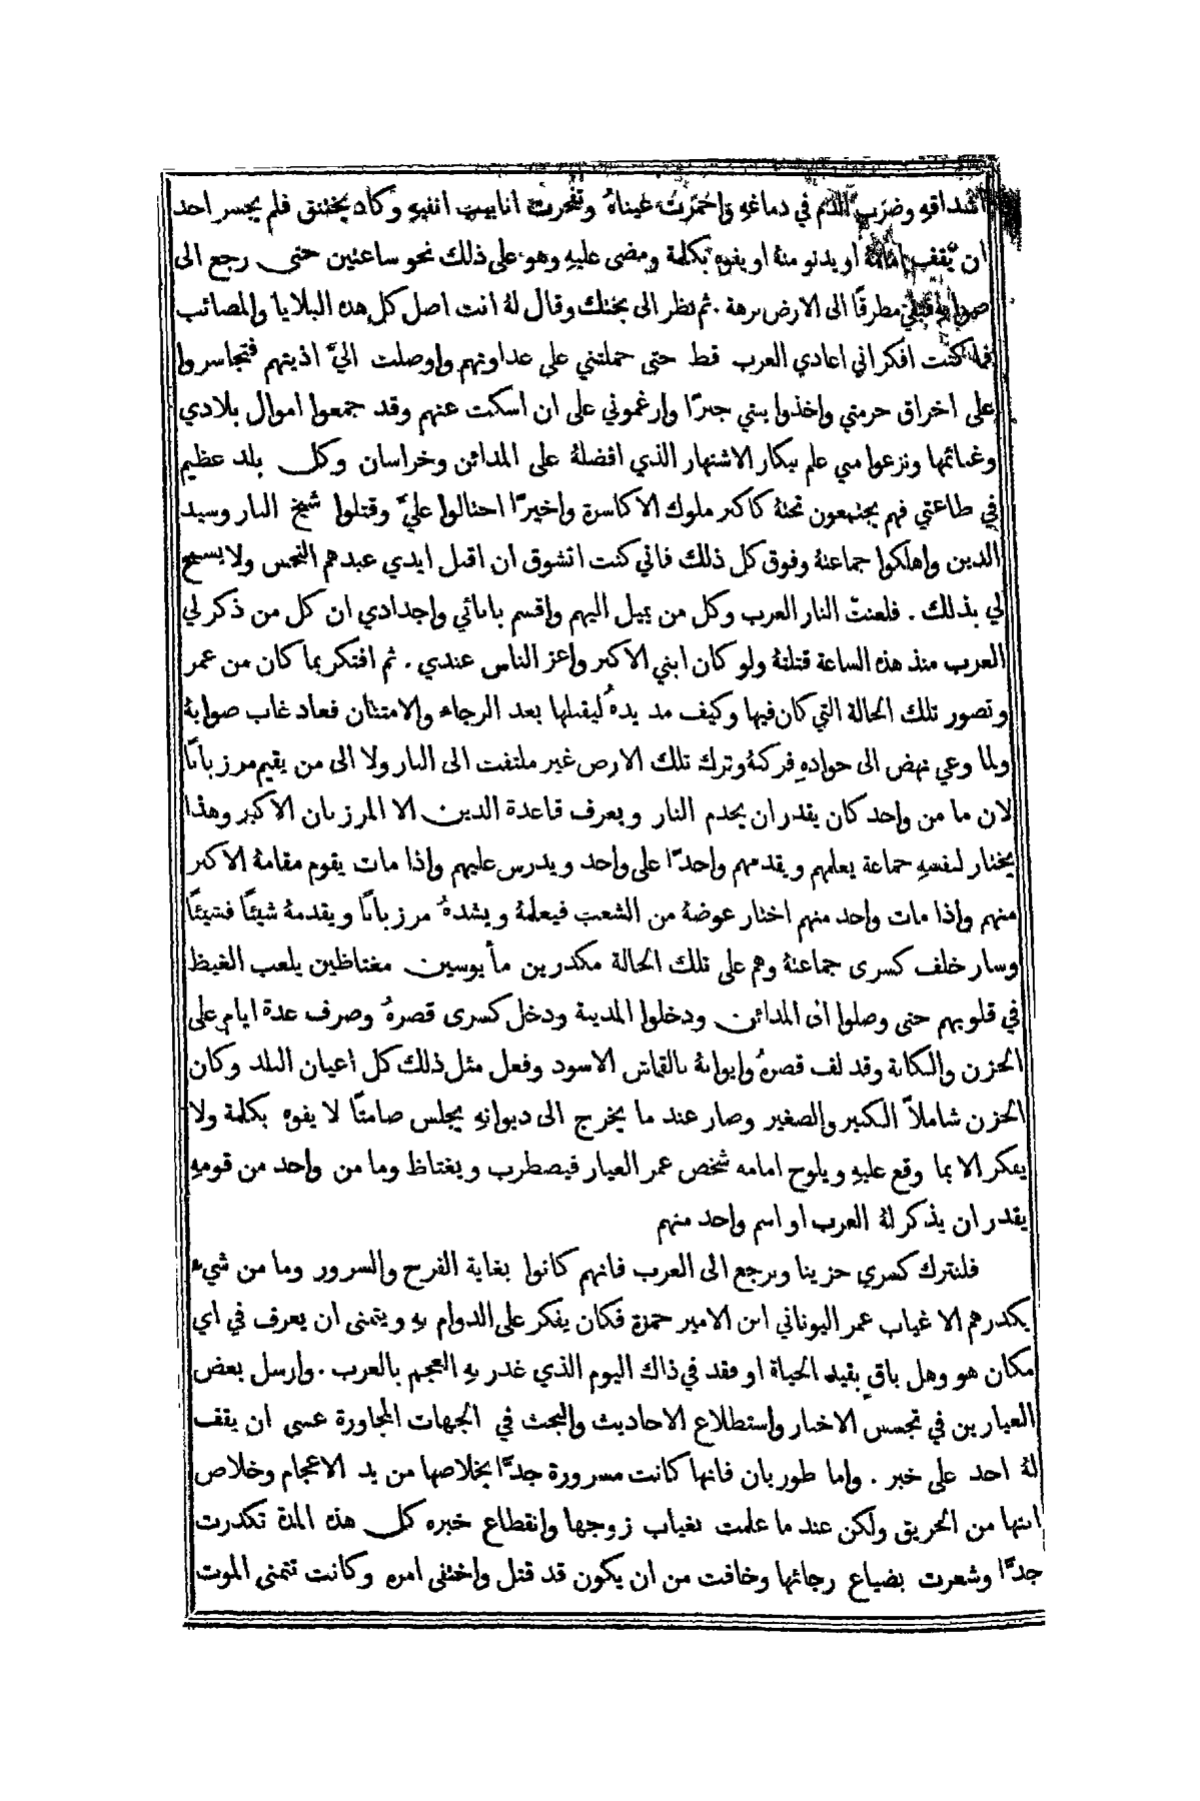 اشداقهِ وضرَب الدم في دماغهِ واحمرَّت عيناهُ وتفجرت انابيب انفهِ وكاد يختنق فلم يجسر احد
ان يَّقف امامهُ او يدنو منهُ او يفوه بكلمة ومضى عليهِ وهو على ذلك نحو ساعتين حتى رجع الى
صوابهِ فبقي مطرقًا الى الارض برهة . ثم نظر الى بختك وقال لهُ انت اصل كل هذه البلايا والمصائب
فما كنت افكر اني اعادي العرب قط حتى حملتني على عداوتهم واوصلت اليَّ اذيتهم فتجاسروا
على اخراق حرمتي واخذوا بنتي جبرًا وارغموني على ان اسكت عنهم وقد جمعوا اموال بلادي
وغنائمها ونزعوا مني علم بيكار الاشتهار الذي افضلهُ على المدائن وخراسان وكل بلد عظيم
في طاعتي فهم يجتمعون تحتهُ كاكبر ملوك الاكاسرة واخيرًا احتالوا عليَّ وقتلوا شيخ النار وسيد
الدين واهلكوا جماعتهُ وفوق كل ذلك فاني كنت اتشوق ان اقبل ايدي عبدهم النحس ولا يسمح
لي بذلك . فلعنت النار العرب وكل من يميل اليهم واقسم بابائي واجدادي ان كل من ذكر لي
العرب منذ هذه الساعة قتلتهُ ولو كان ابني الاكبر واعز الناس عندي . ثم افتكر بما كان من عمر
وتصور تلك الحالة التي كان فيها وكيف مد يدهُ ليقبلها بعد الرجاء والامتنان فعاد غاب صوابهُ
ولما وعي نهض الى جوادهِ فركبهُ وترك تلك الارض غير ملتفت الى النار ولا الى من يقيم مرزبانًا
لان ما من واحد كان يقدر ان يخدم النار ويعرف قاعدة الدين الا المرزبان الاكبر وهذا
يختار لنفسهِ جماعة يعلمهم ويقدمهم واحدًا على واحد ويدرس عليهم واذا مات يقوم مقامهُ الاكبر
منهم واذا مات واحد منهم اختار عوضهُ من الشعب فيعلمهُ ويشدهُ مرزبانًا ويقدمهُ شيئًا فشيئًا
وسار خلف كسرى جماعتهُ وهم على تلك الحالة مكدرين مأيوسين مغتاظين يلعب الغيظ
في قلوبهم حتى وصلوا الى المدائن ودخلوا المدينة ودخل كسرى قصرهُ وصرف عدة ايام على
الحزن والكابة وقد لف قصرهُ وايوانهُ بالقماش الاسود وفعل مثل ذلك كل اعيان البلد وكان
الحزن شاملاً الكبير والصغير وصار عند ما يخرج الى ديوانهِ يجلس صامتًا لا يفوه بكلمة ولا
يفكر الا بما وقع عليهِ ويلوح امامه شخص عمر العيار فيضطرب ويغتاظ وما من واحد من قومهِ
يقدر ان يذكر لهُ العرب او اسم واحد منهم
فلنترك كسرى حزينا ونرجع الى العرب فانهم كانوا بغاية الفرح والسرور وما من شيء
يكدرهم الا غياب عمر اليوناني ابن الامير حمزة فكان يفكر على الدوام بهِ ويتمنى ان يعرف في اي
مكان هو وهل باقٍ بقيد الحياة او فقد في ذاك اليوم الذي غدر بهِ العجم بالعرب . وارسل بعض
العيارين في تجسس الاخبار واستطلاع الاحاديث والبحث في الجهات المجاورة عسى ان يقف
لهُ احد على خبر . واما طوربان فانها كانت مسرورة جدًّا بخلاصها من يد الاعجام وخلاص
ابنها من الحريق ولكن عند ما علمت بغياب زوجها وانقطاع خبره كل هذه المدة تكدرت
جدًّا وشعرت بضياع رجائها وخافت من ان يكون قد قتل واختفى امره وكانت تتمنى الموت